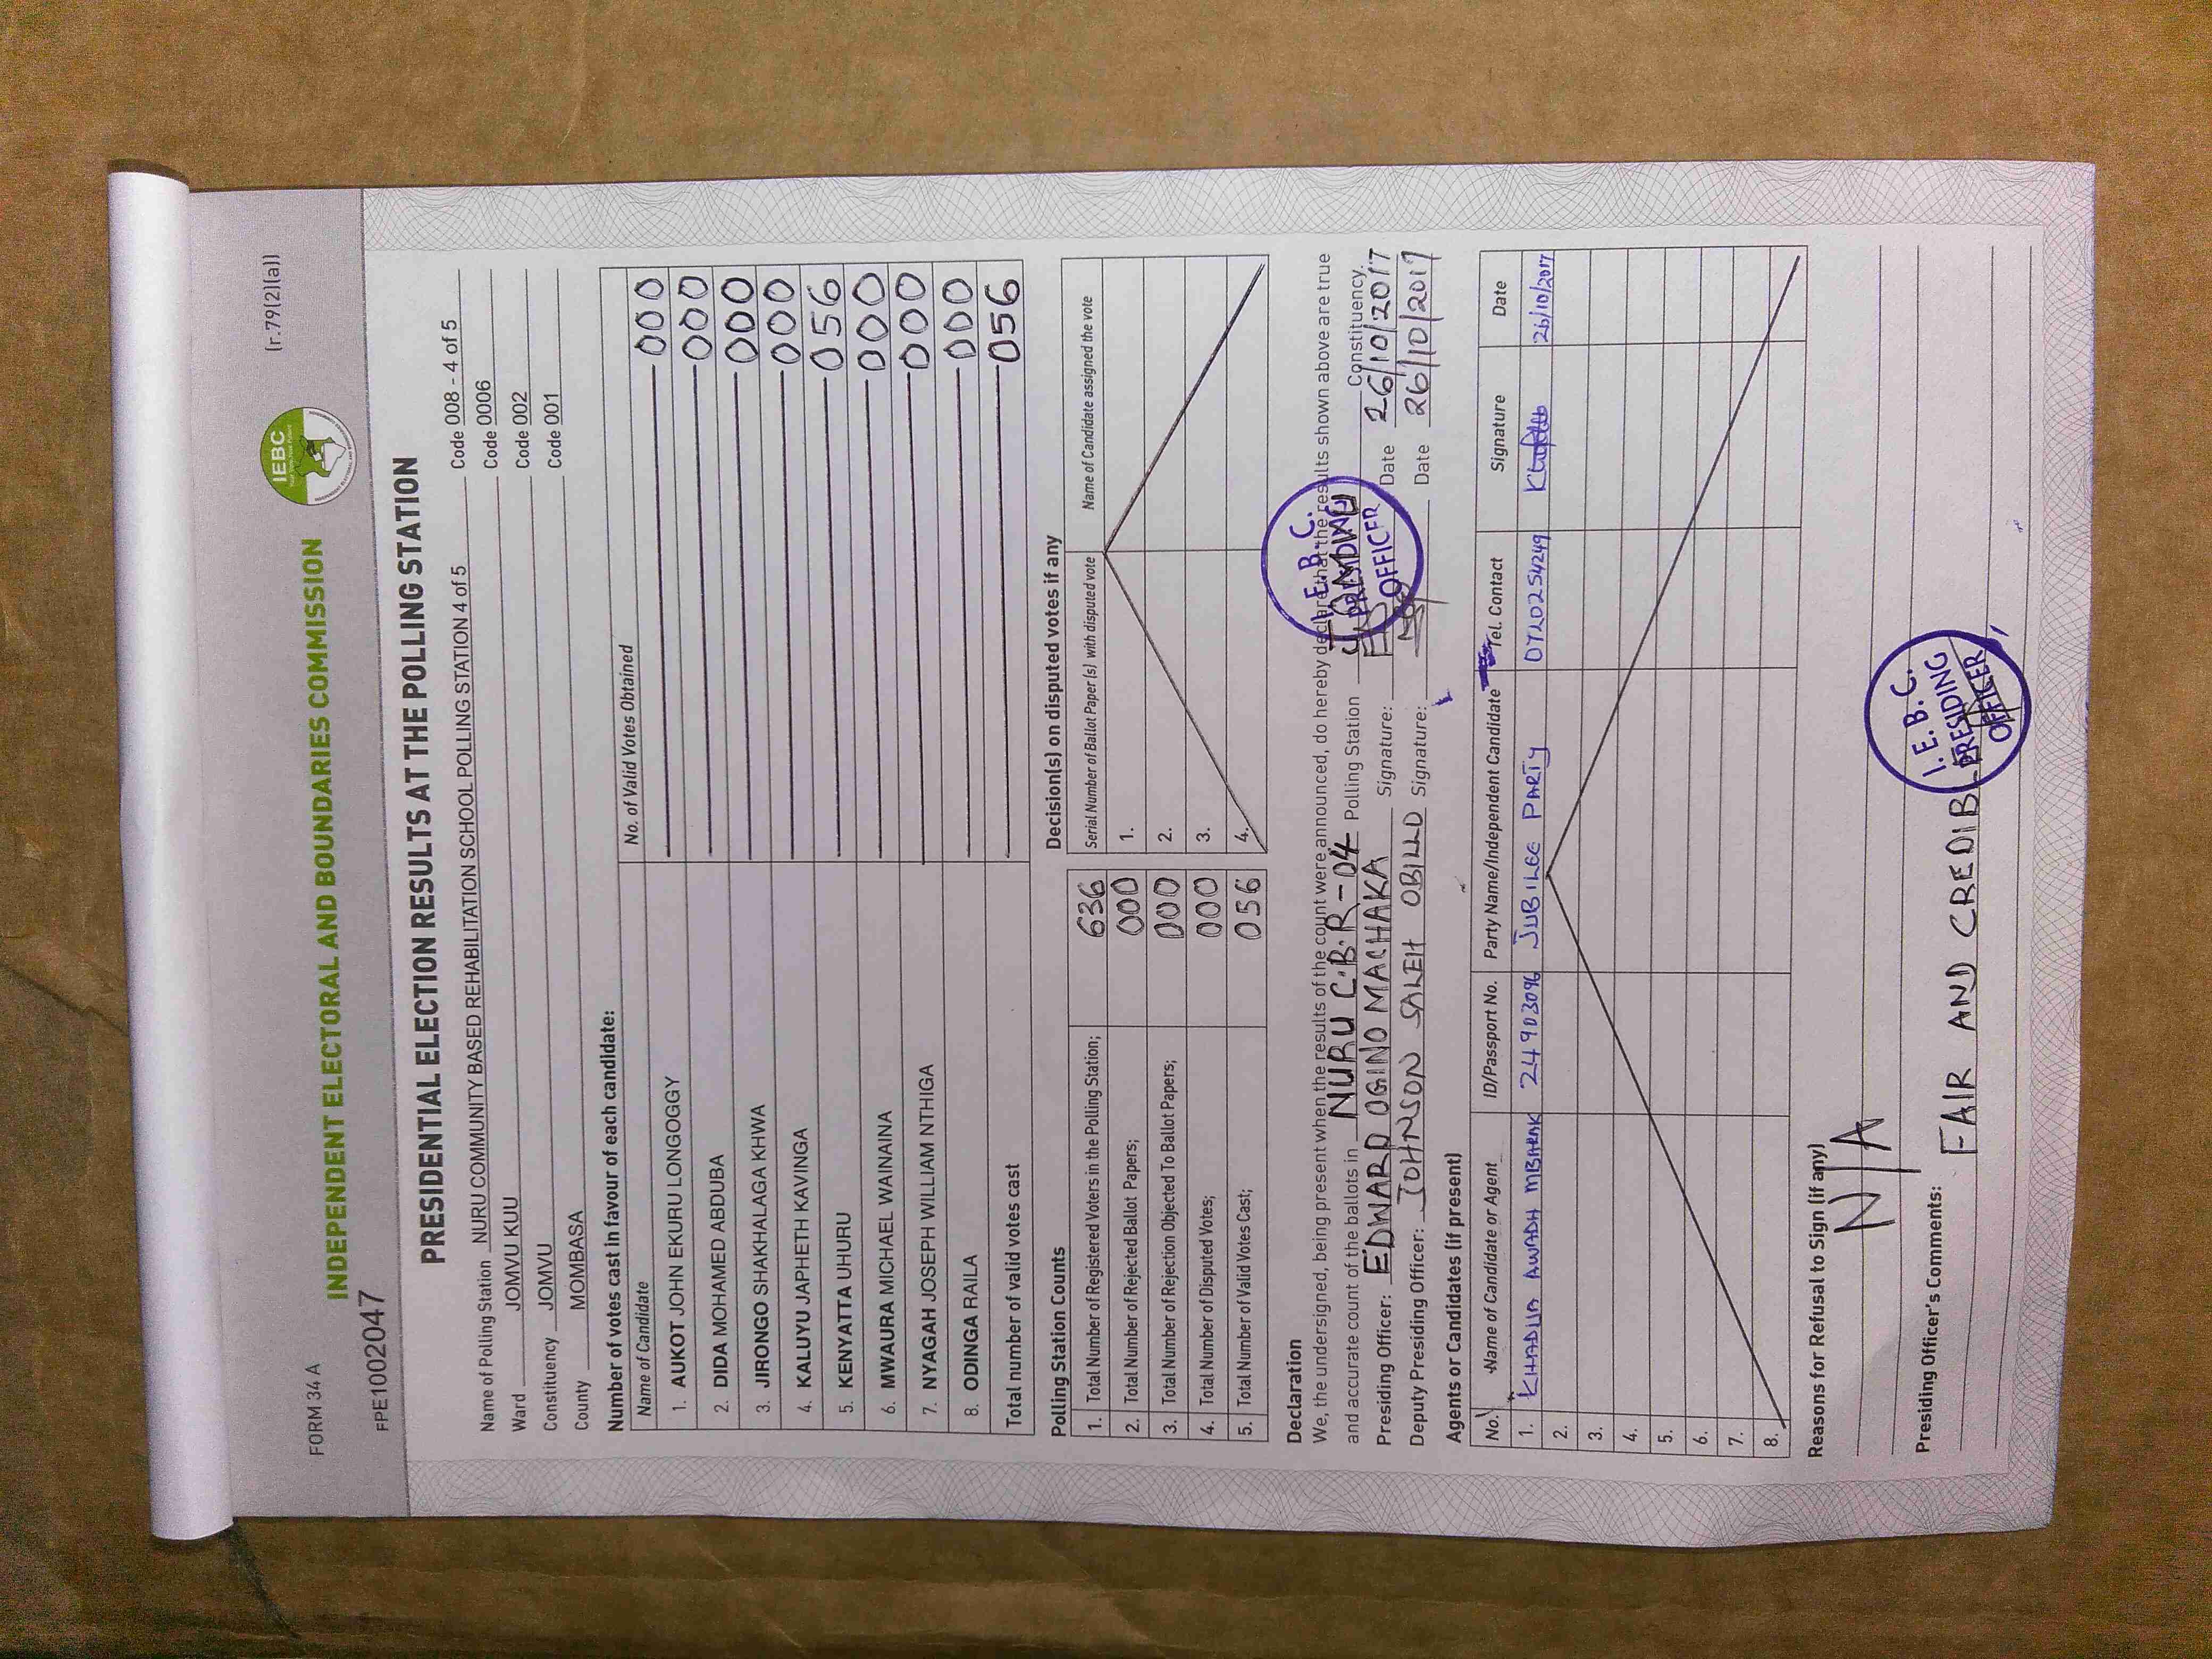 FORM 34 A
(r.79(2)(a))
INDEPENDENT ELECTORAL AND BOUNDARIES COMMISSION
IEBC
FPE1002047
PRESIDENTIAL ELECTION RESULTS AT THE POLLING STATION
Name of Polling Station NURU COMMUNITY BASED REHABILITATION SCHOOL POLLING STATION 4 of 5 Code 008 - 4 of 5
Ward JOMVU KUU Code 0006
Constituency JOMVU Code 002
County MOMBASA Code 001
Number of votes cast in favour of each candidate:
Name of Candidate No. of Valid Votes Obtained
1. AUKOT JOHN EKURU LONGOGGY 000
2. DIDA MOHAMED ABDUBA 000
3. JIRONGO SHAKHALAGA KHWA 000
4. KALUYU JAPHETH KAVINGA 000
5. KENYATTA UHURU 056
6. MWAURA MICHAEL WAINAINA 000
7. NYAGAH JOSEPH WILLIAM NTHIGA 000
8. ODINGA RAILA 000
Total number of valid votes cast 056
Polling Station Counts
1. Total Number of Registered Voters in the Polling Station; 636
2. Total Number of Rejected Ballot Papers; 000
3. Total Number of Rejection Objected To Ballot Papers; 000
4. Total Number of Disputed Votes; 000
5. Total Number of Valid Votes Cast; 056
Decision(s) on disputed votes if any
Serial Number of Ballot Paper (s) with disputed vote Name of Candidate assigned the vote
1.
2.
3.
4.
Declaration
We, the undersigned, being present when the results of the count were announced, do hereby declare that the results shown above are true
and accurate count of the ballots in NURU C.B.R-04 Polling Station JOMVU Constituency.
Presiding Officer: EDWARD OGINO MACHAKA Signature: Date 26/10/2017
Deputy Presiding Officer: JOHNSON SALEH OBILLO Signature: Date 26/10/2017
I.E.B.C. PRESIDING OFFICER
Agents or Candidates (if present)
No. Name of Candidate or Agent ID/Passport No. Party Name/Independent Candidate Tel. Contact Signature Date
1. KHADIJA AWADH MBARAK 24903096 JUBILEE PARTY 0720254249 26/10/2017
2.
3.
4.
5.
6.
7.
8.
Reasons for Refusal to Sign (if any)
N/A
Presiding Officer's Comments:
FAIR AND CREDIBLE
I.E.B.C. PRESIDING OFFICER